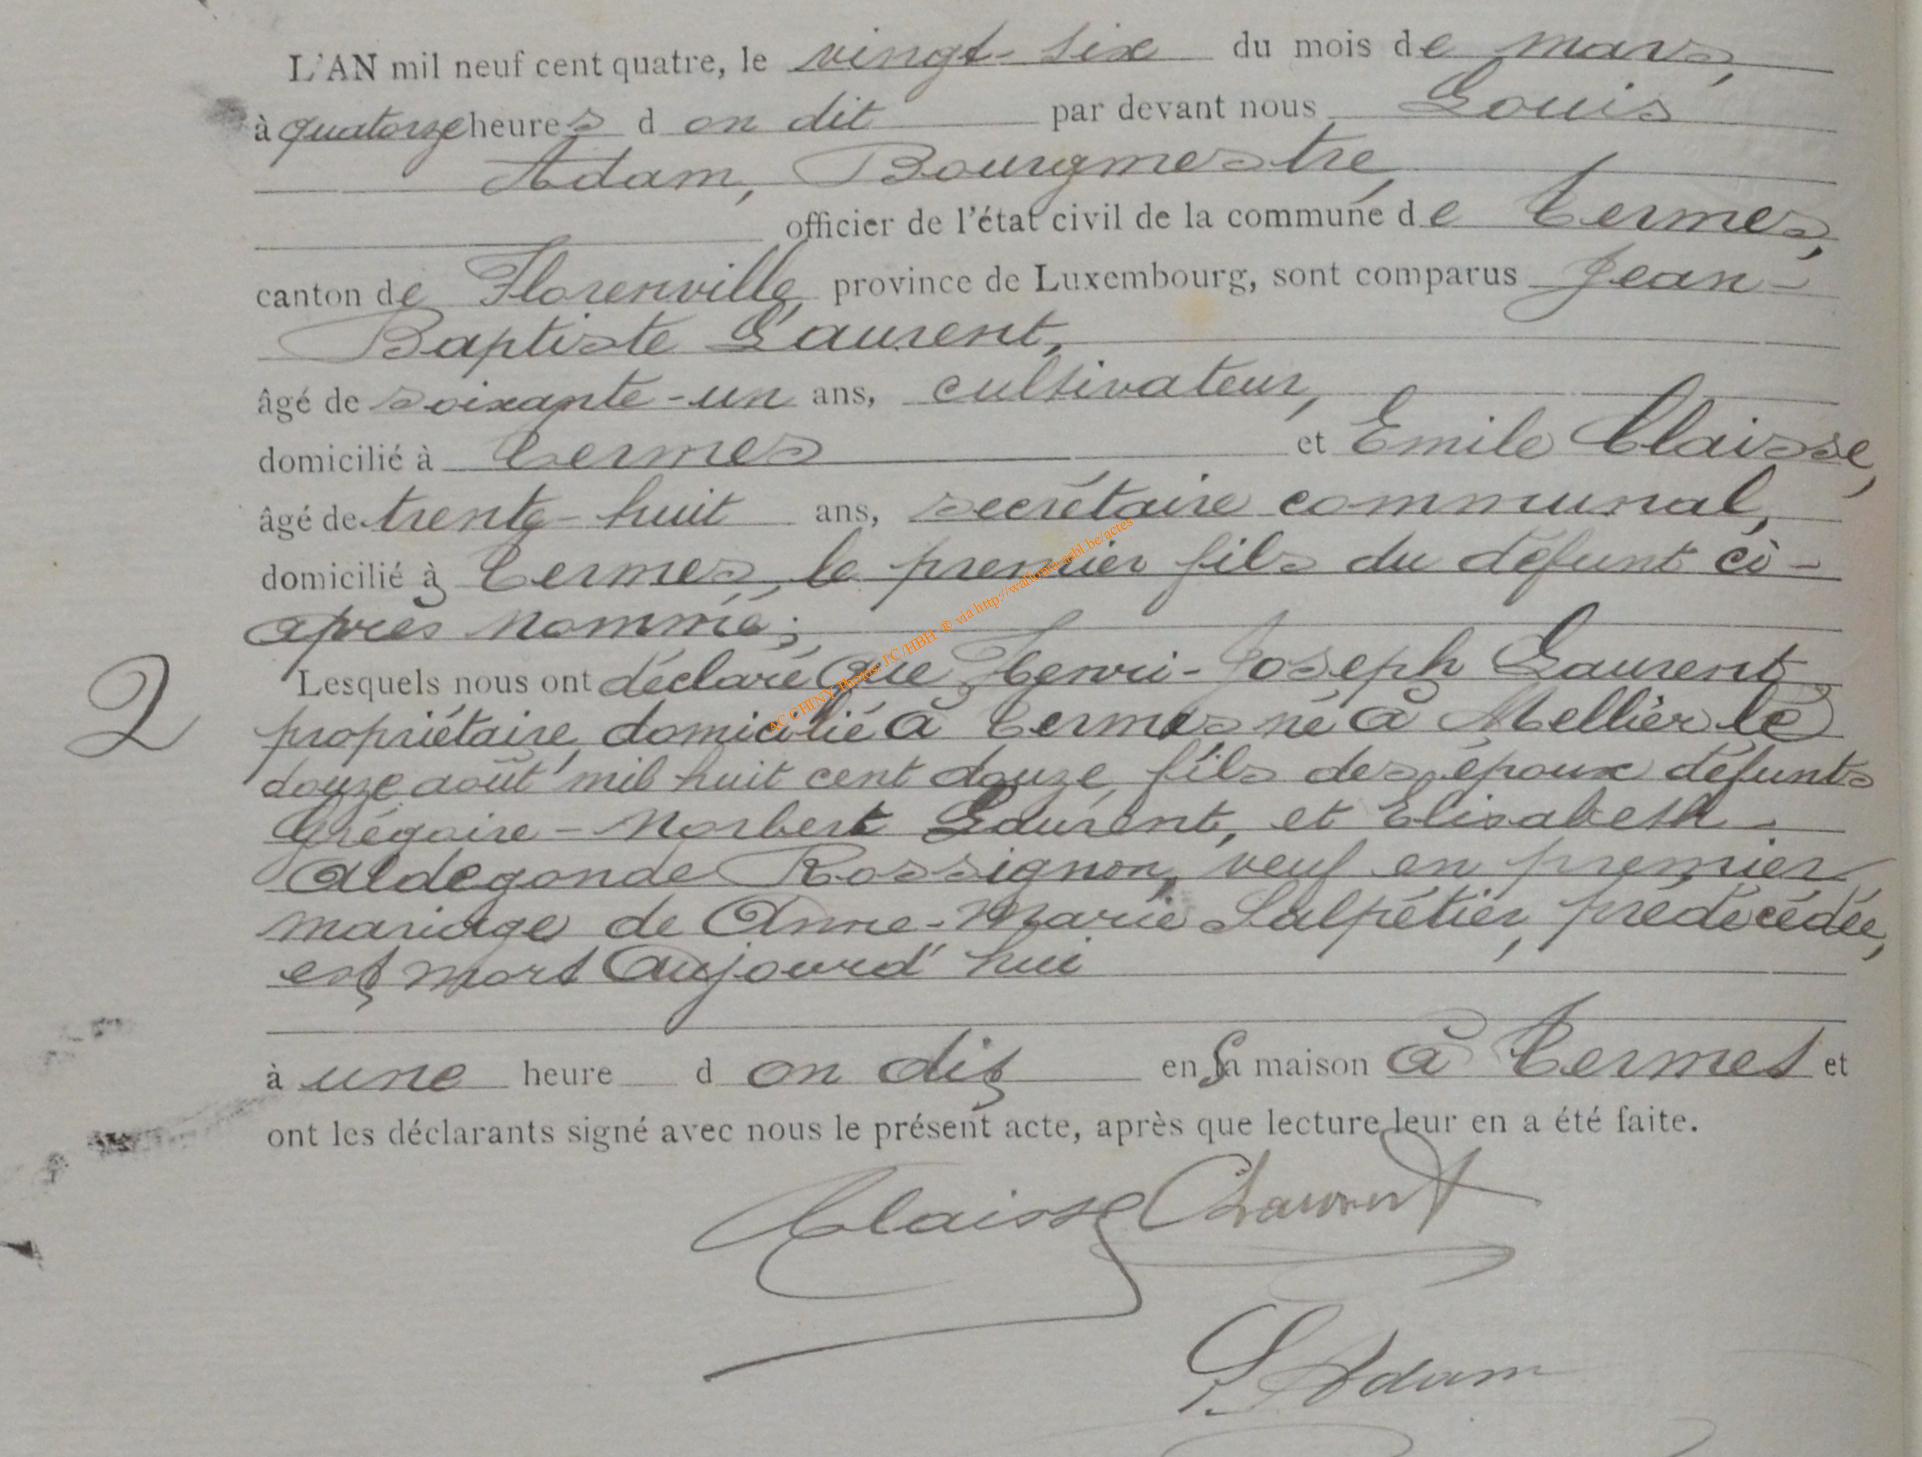 L'AN mil neuf cent quatre, le vingt-six du mois de mars,
à quatorze heures d on dit par devant nous Louis
Adam, Bourgmestre,
officier de l'état civil de la commune de Termes,
canton de Florenville, province de Luxembourg, sont comparus Jean-
Baptiste Laurent,
âgé de soixante-un ans, cultivateur,
domicilié à Termes et Emile Claisse,
âgé de trente-huit ans, secrétaire communal,
domicilié à Termes, le premier fils du défunt ci-
après nommé;
2
Lesquels nous ont déclaré que Henri-Joseph Laurent,
propriétaire, domicilié à Termes né à Mellier le
douze août mil huit cent douze, fils des époux défunts
Grégoire-Norbert Laurent, et Elisabeth
Aldegonde Rossignon, veuf en premier
mariage de Anne-Marie Salpétier, prédécédée,
est mort aujourd'hui
à une heure d on dit en sa maison à Termes et
ont les déclarants signé avec nous le présent acte, après que lecture leur en a été faite.
Claisse Laurent
L Adam
AC CHINY Photos JC/HBH ® via http://wallonia-asbl.be/actes